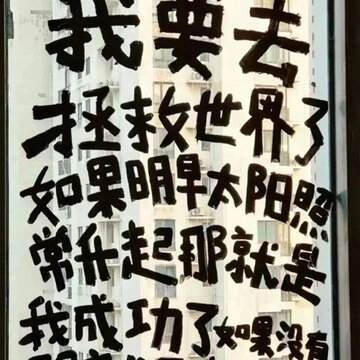 我要去
拯救世界了
如果明早太阳照
常升起那就是
我成功了如果没有